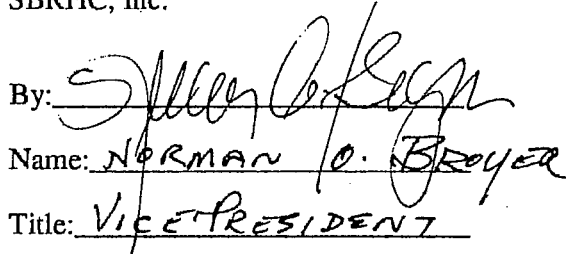 SBRHC, Inc.
By:
Name: NORMAN O. BROYER
Title: VICE PRESIDENT